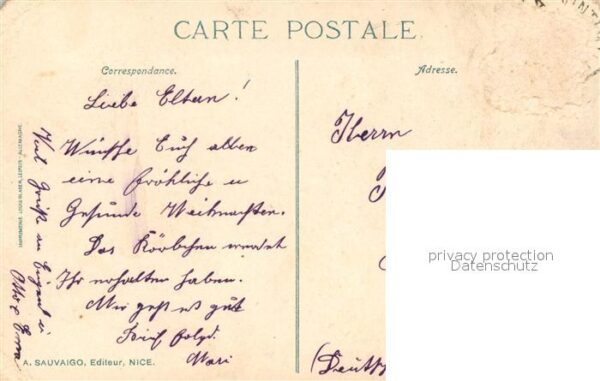 CARTE POSTALE.
Correspondance.
Adresse.
Liebe Eltern!
Wünsche Euch allen
eine fröhliche u
Gesunde Weihnachten.
Das Körbchen werdet
Ihr erhalten haben.
Mir geht es gut
Brief folgt.
Mari
Viel Grüße an
u
Otto & Erna
Herrn
(Deutsch
privacy protection
Datenschutz
A. SAUVAIGO, Editeur, NICE.